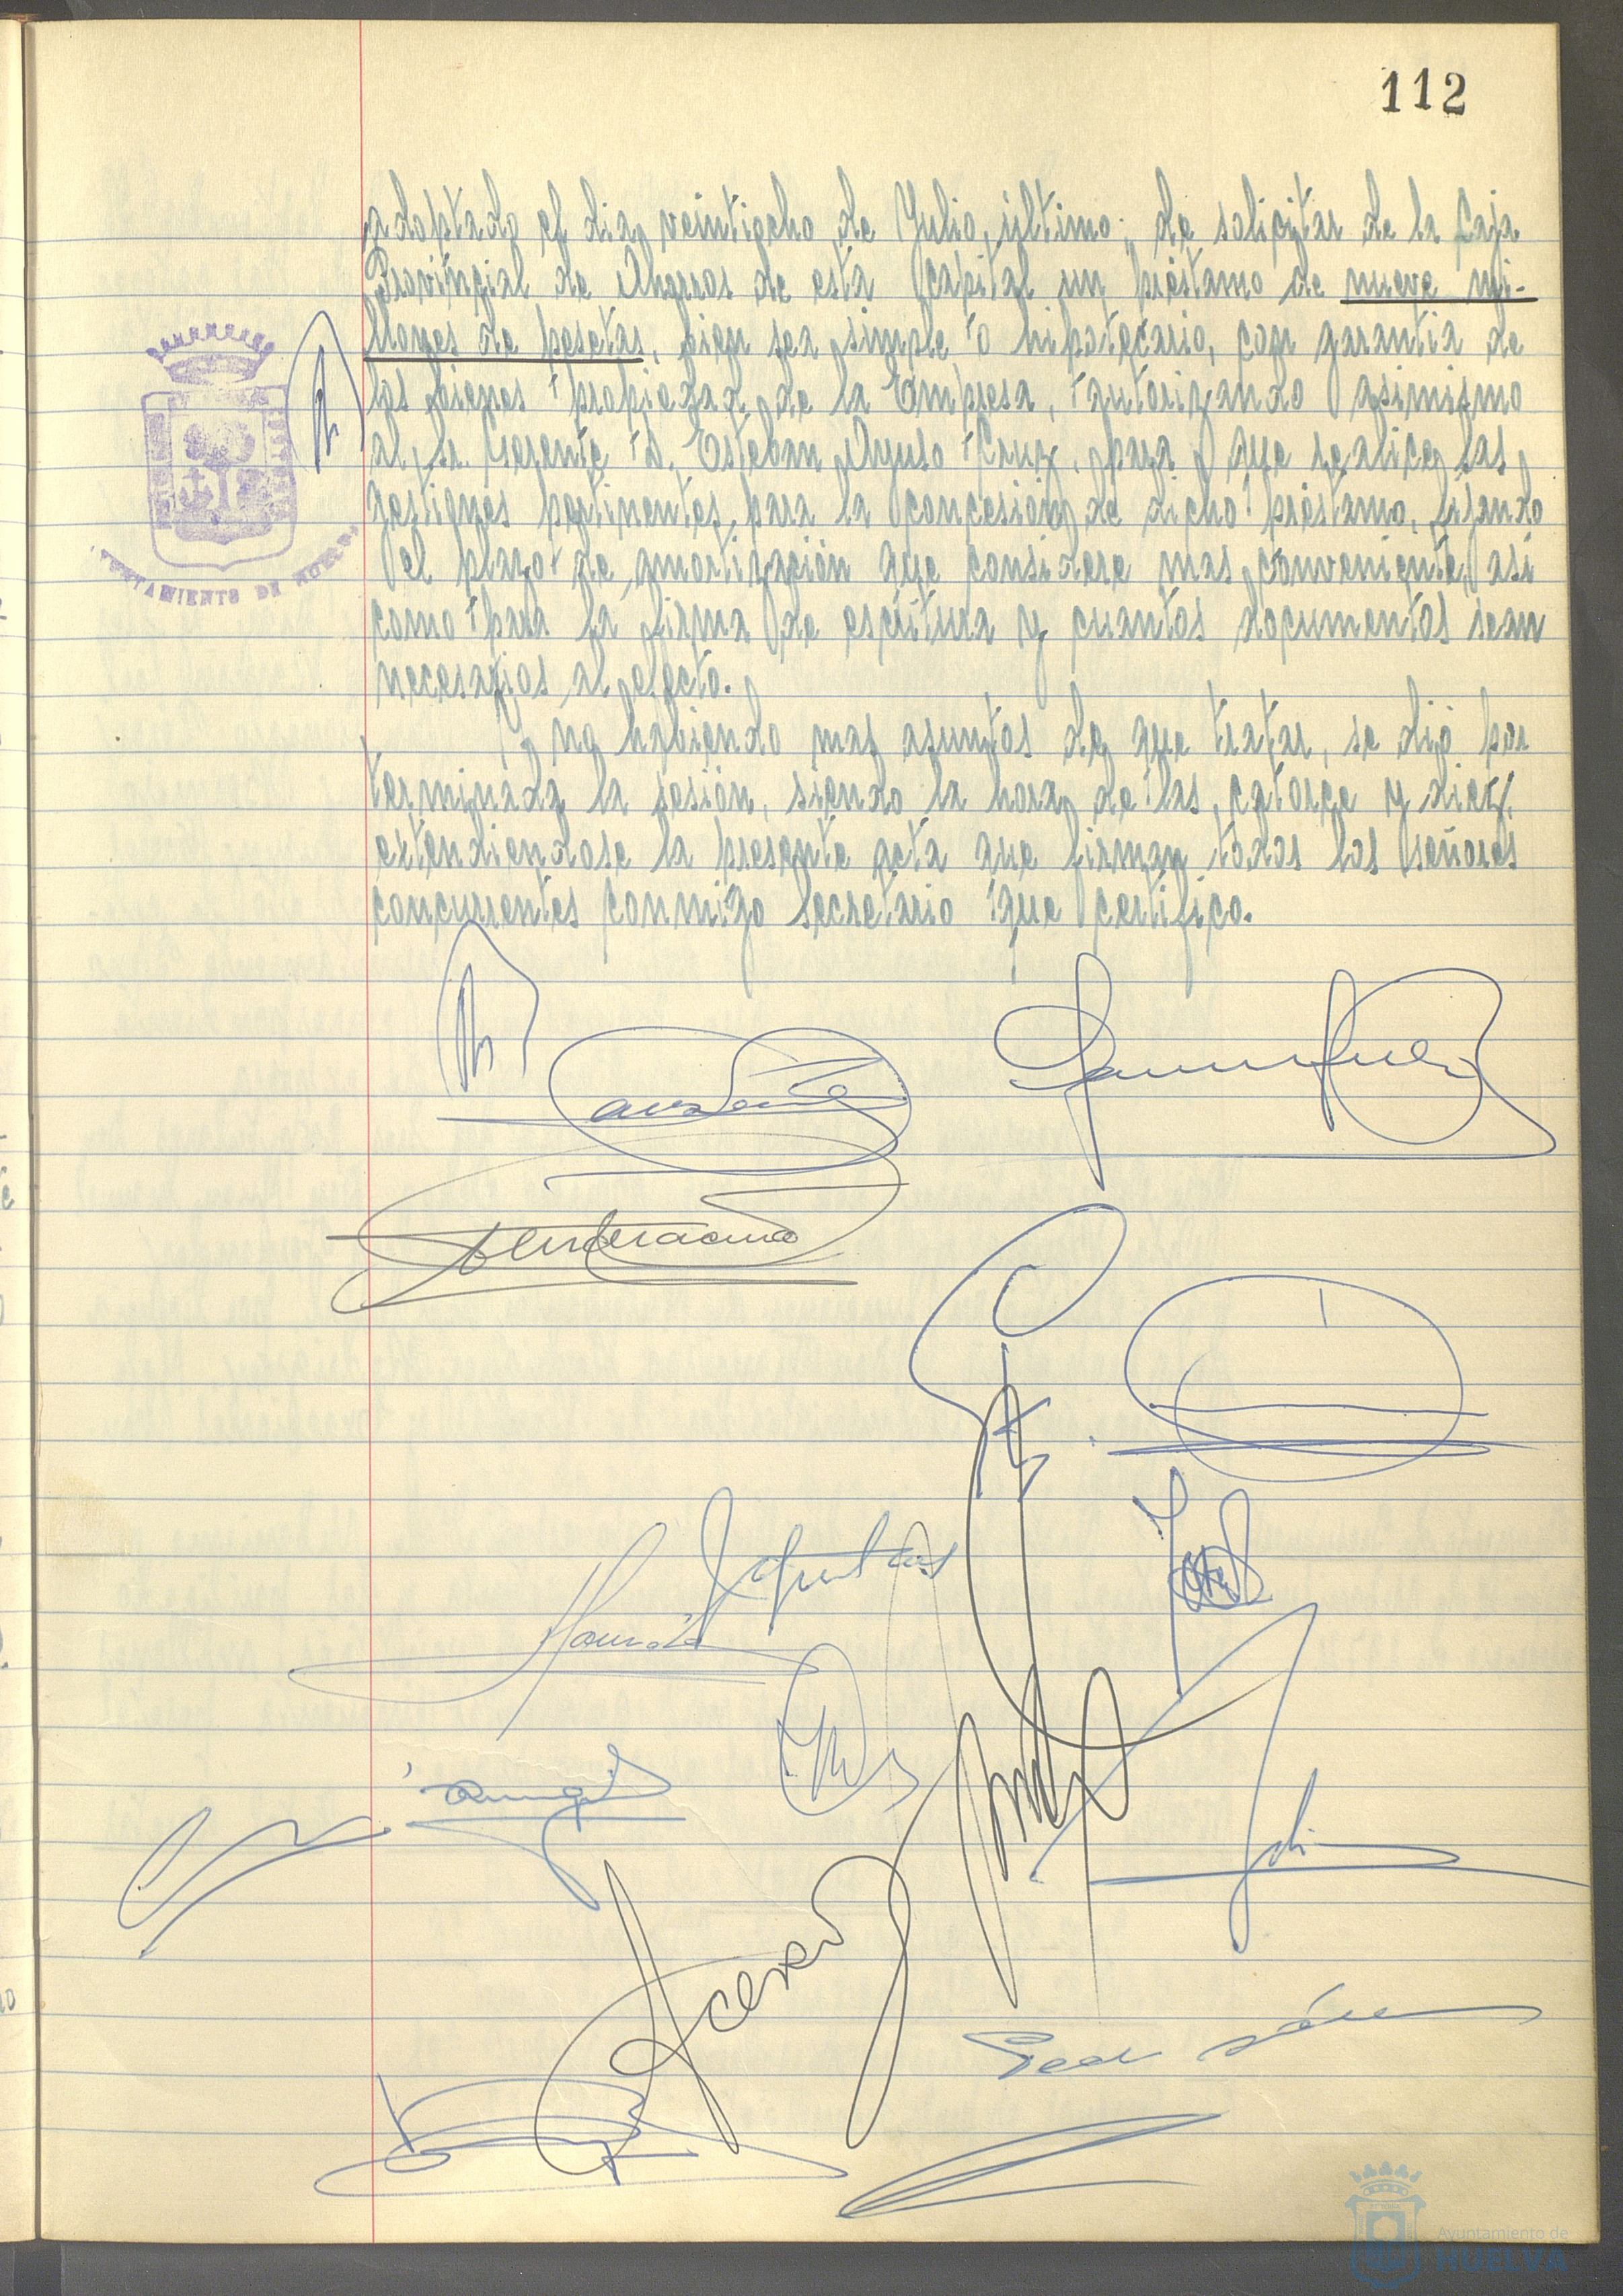 112
adoptado el dia veintiocho de Julio, último, de solicitar de la Caja
Provincial de Ahorros de esta Capital un préstamo de nueve mi-
llones de pesetas, bien sea simple o hipotecario, con garantia de
los bienes propiedad de la Empresa, autorizando asimismo
al Sr. Gerente D. Esteban Ayuso Cruz, para que realice las
gestiones pertinentes para la concesión de dicho préstamo, fijando
el plazo de amortización que considere mas conveniente, asi
como para la firma de escritura y cuantos documentos sean
necesarios al efecto.
Y no habiendo mas asuntos de que tratar, se dió por
terminada la sesión, siendo la hora de las catorce y diez,
extendiendose la presente acta que firman todos los señores
concurrentes conmigo Secretario que certifico.
AYUNTAMIENTO DE HUELVA
Acevedo
Ayuntamiento de
HUELVA